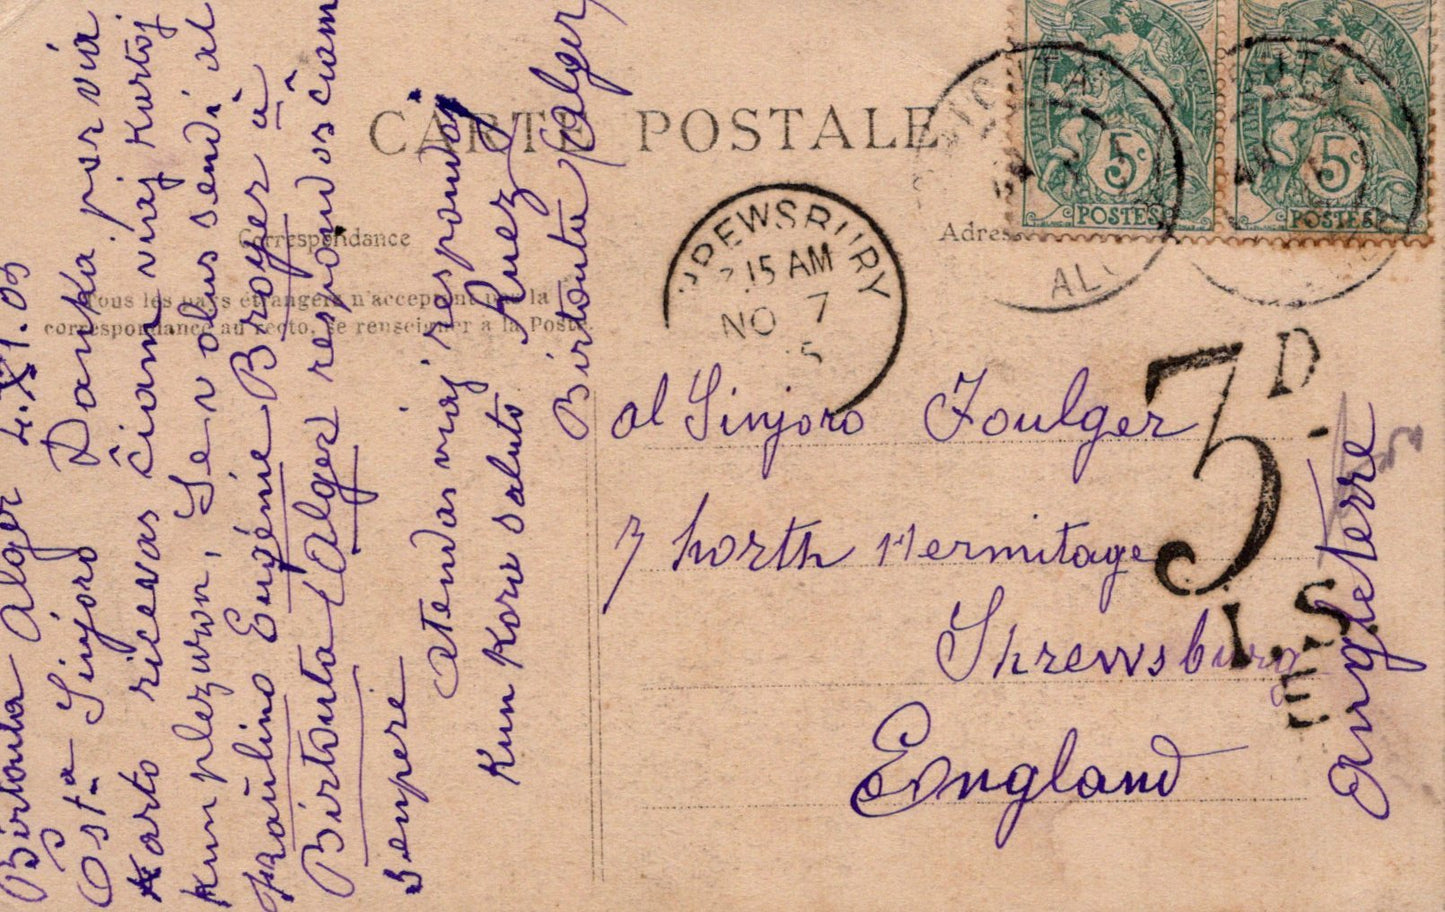 CARTE POSTALE
Correspondance
Adresse
Tous les pays étrangers n'acceptent pas la
correspondance au recto, se renseigner à la Poste.
Birtouta Alger 4.XI.05
Est.a Sinjoro Danka por via
karto ricevas ĉiam viaj kartoj
kun plezuron, Se volus sendi al
fraŭlino Eugénie Broyer à
Birtouta (Alger respondos ĉiam
senpere
Atendas viaj respondoj
Kun kore saluto Ruez
Birtouta (Alger
al Sinjoro Foulger
7 north Hermitage
Shrewsburg
England
Angleterre
SHREWSBURY
7.15 AM
NO 7
5
3D.
I.S.
E
5c
POSTES
5c
POSTES